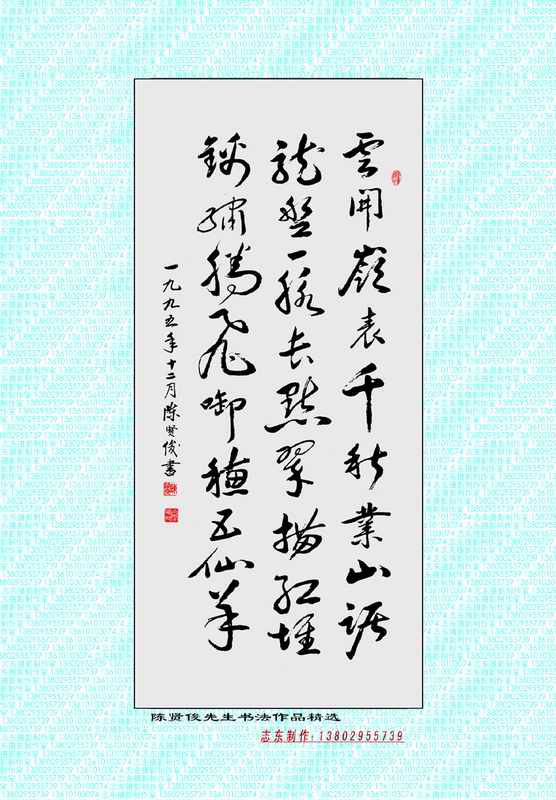 雲開嶺表千秋業山踞
龍盤一脈長點翠描紅堆
錦繡騰飛啣穗五仙羊
一九九五年十二月陈贤俊書
陈贤俊先生书法作品精选
志东制作:13802955739